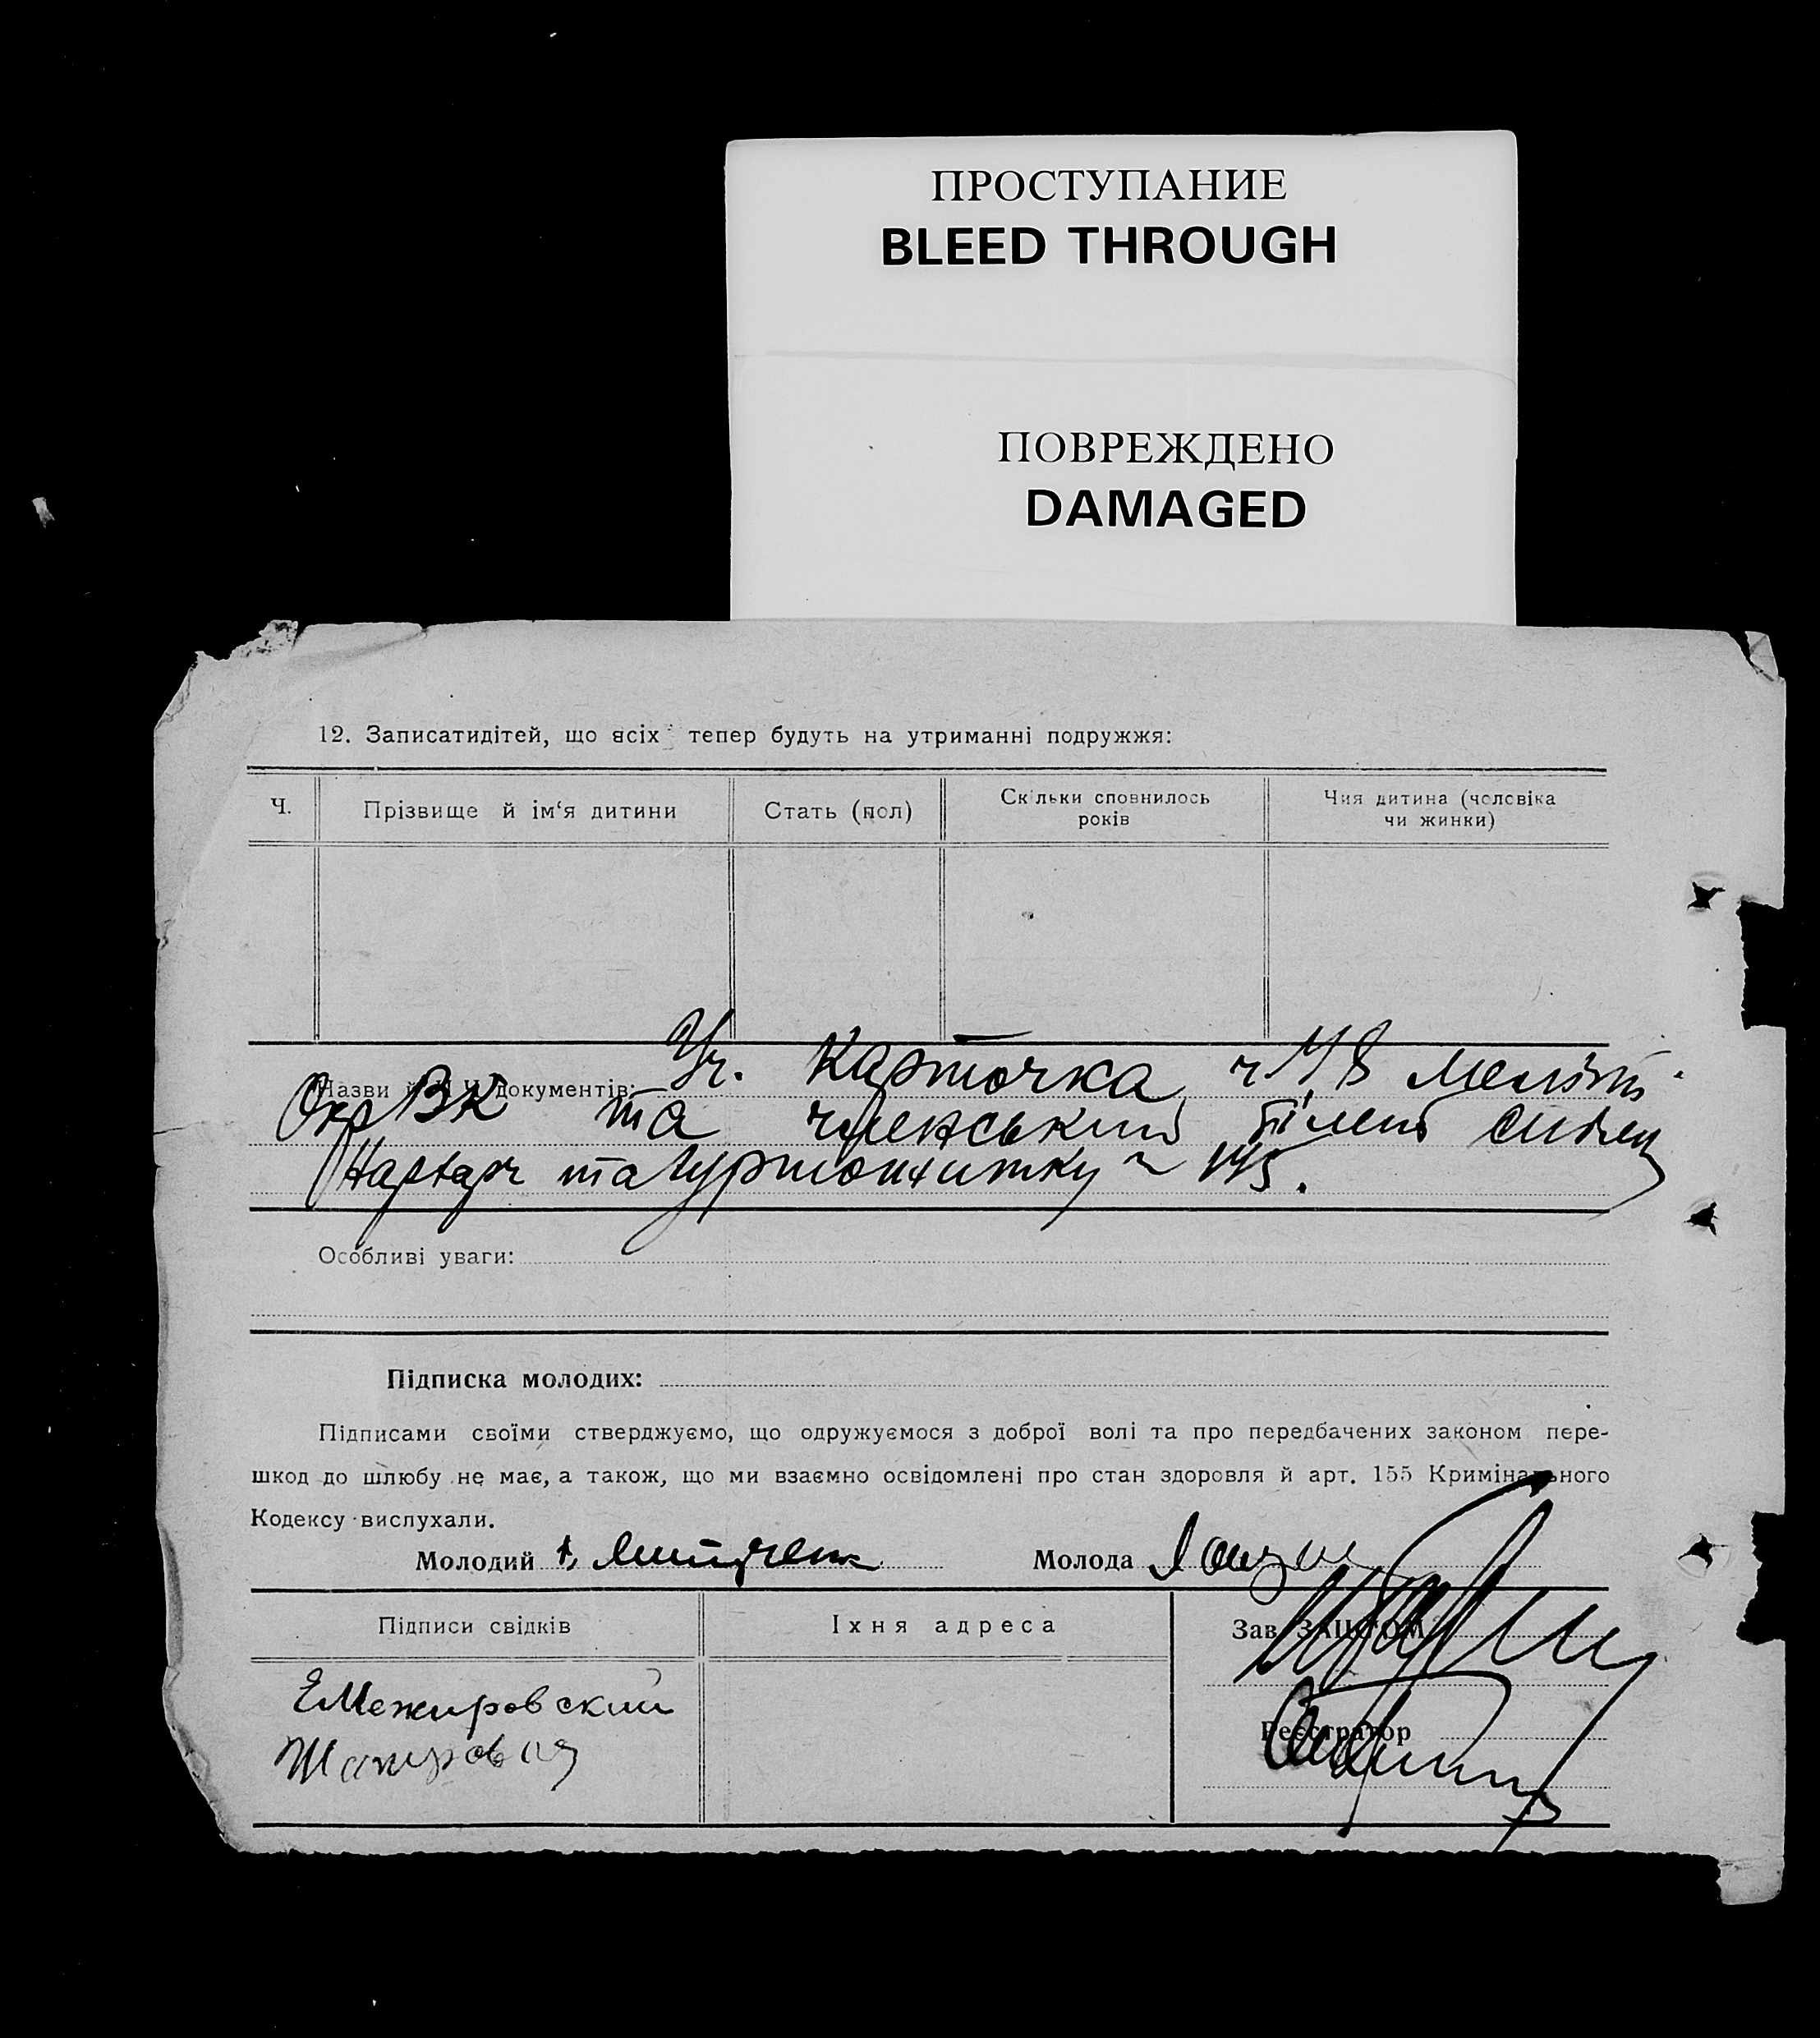 ПРОСТУПАНИЕ
BLEED THROUGH
ПОВРЕЖДЕНО
DAMAGED
12. Записатидітей, що всіх тепер будуть на утриманні подружжя:
Ч.
Прізвище й ім‘я дитини
Стать (пол)
Скільки сповнилось
років
Чия дитина (чоловіка
чи жинки)
Назви й Ч.Ч. документів: Уч. Карточка
ОкрВК та членський білет
та
Особливі уваги:
Підписка молодих:
Підписами своїми стверджуємо, що одружуємося з доброї волі та про передбачених законом пере-
шкод до шлюбу не має, а також, що ми взаємно освідомлені про стан здоровля й арт. 155 Кримінального
Кодексу вислухали.
Молодий
Молода
Підписи свідків
Їхня адреса
Зав. ЗАЦСОМ
ЕМежировский
Реєстратор